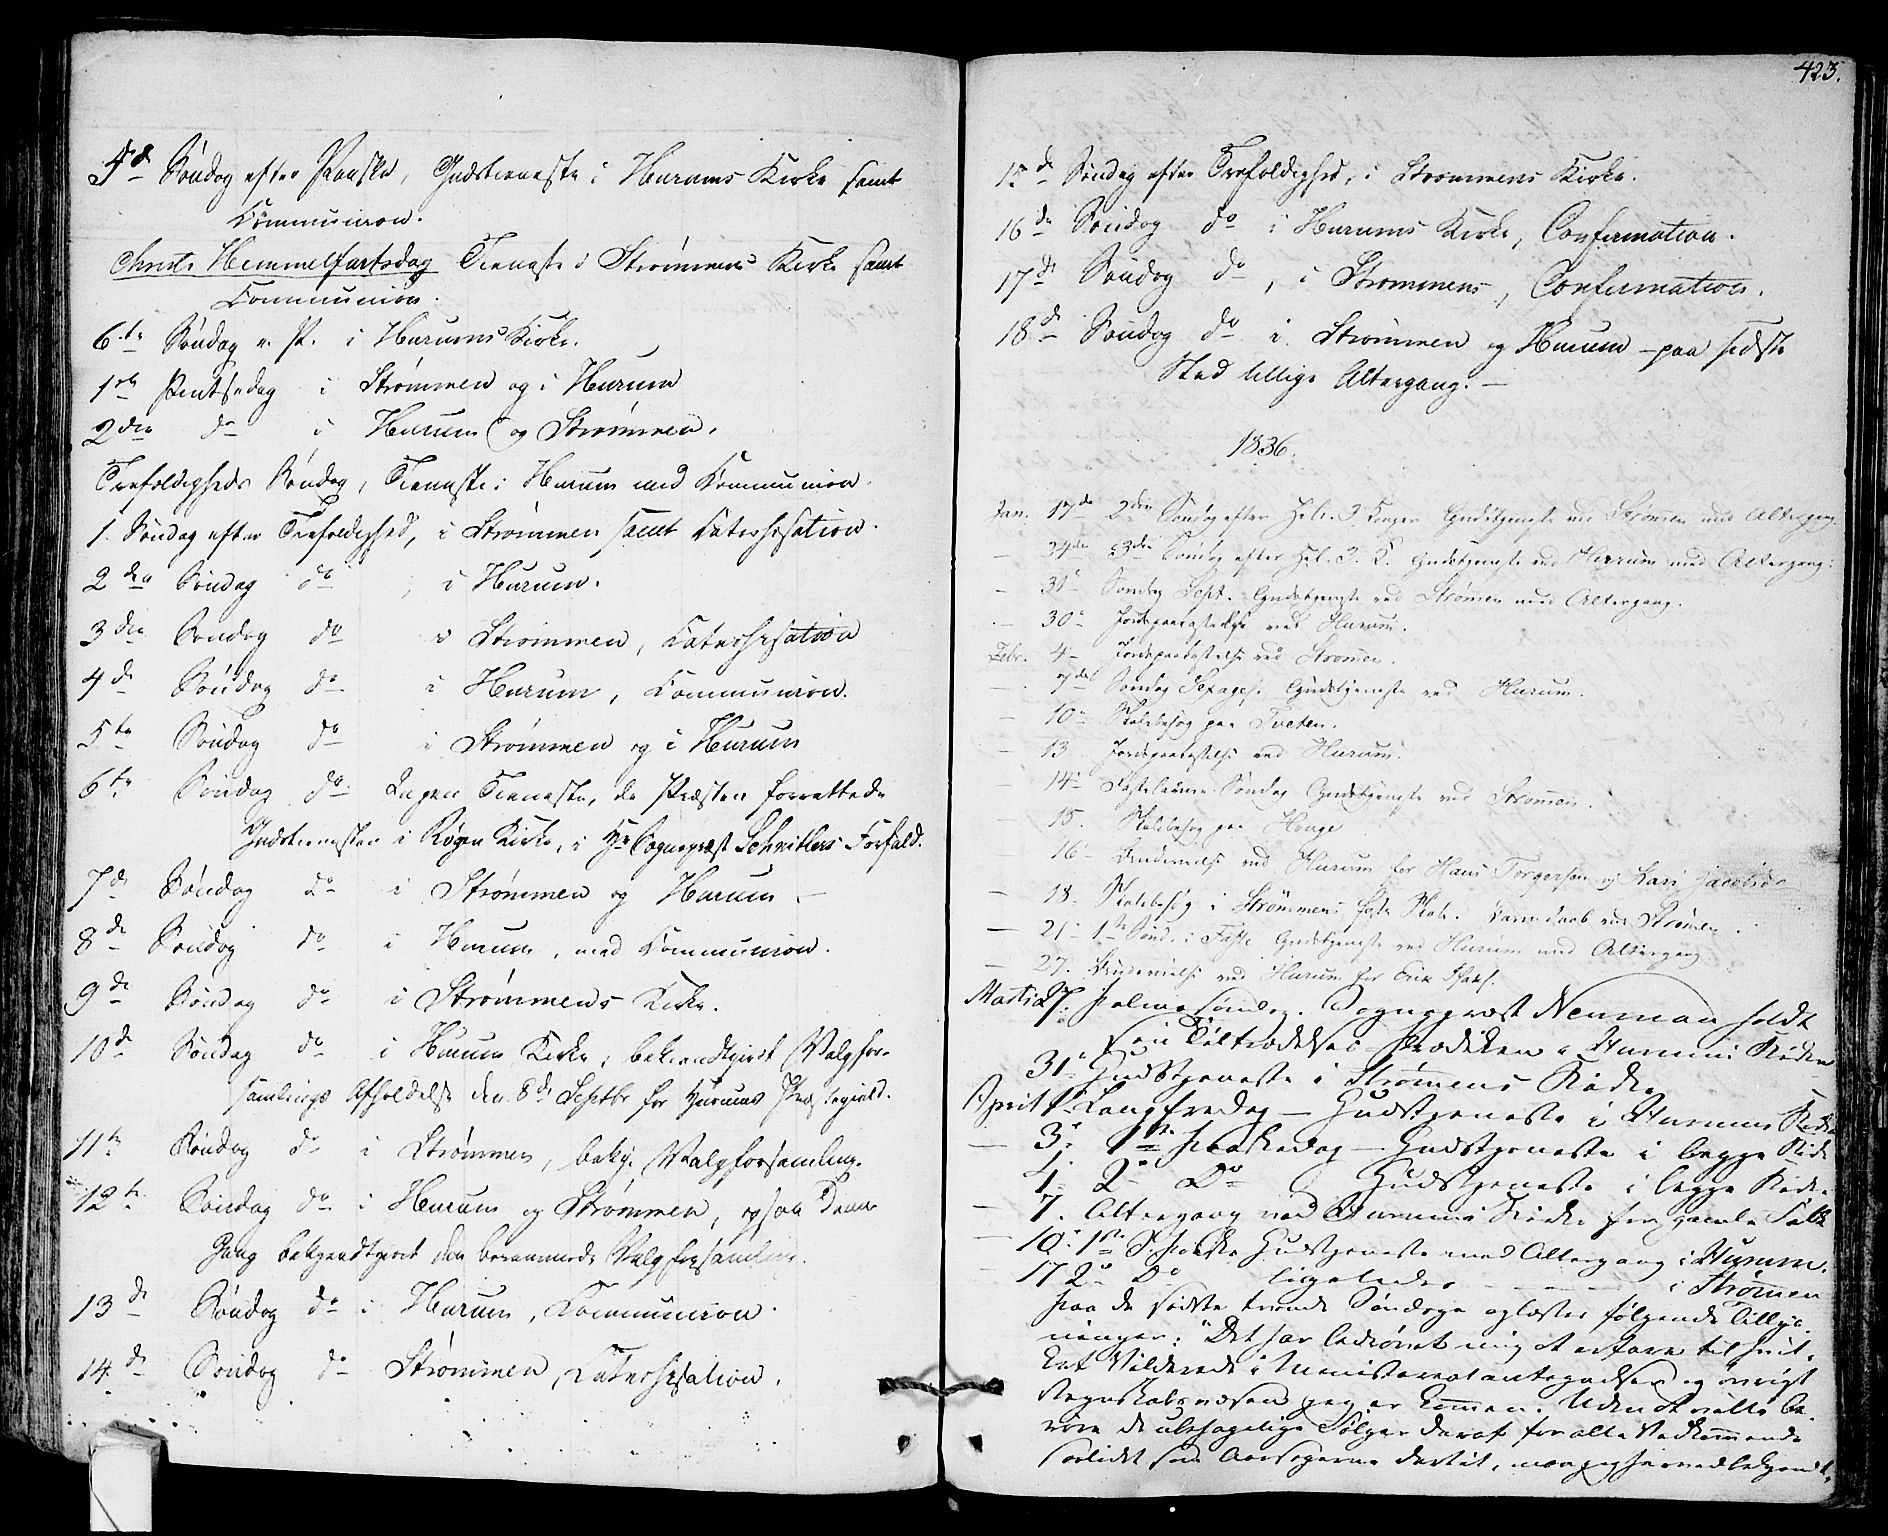 5d Søndag efter Paaske, Gudstieneste i Hurums Kirke samt
Communion.
Christi Himmelfartsdag Tieneste i Strømmens Kirke samt
Communion.
6te Søndag e. P. i Hurums Kirke.
1ste Pintsedag i Strømmen og i Hurum
2den do i Hurum og Strømmen.
Trefoldigheds Søndag, Tieneste i Hurum med Communion.
1. Søndag efter Trefoldighed, i Strømmen samt Catechisation.
2den Søndag do, i Hurum.
3die Søndag do i Strømmen, Catechisation
4de Søndag do i Hurum, Communion.
5te Søndag do i Strømmen og i Hurum
6te Søndag do Ingen Tieneste, da Præsten forrettede
Gudstienesten i Røgen Kirke, i Hr Sognepræst Schnitlers Forfald.
7de Søndag do i Strømmen og Hurum.
8de Søndag do i Hurum, med Communion.
9de Søndag do i Strømmens Kirke.
10de Søndag do i Hurum Kirke, bekiendtgiort Valgfor-
samlings Afholdelse den 8de Septbr for Hurums Præstegield.
11te Søndag do i Strømmen, bekg. Valgforsamling.
12te Søndag do i Hurum og Strømmen, ogsaa denne
Gang bekgiendtgiort den berammede Valgforsamling.
13de Søndag do i Hurum, Communion.
14de Søndag do Strømmen, Catechisation.
423.
15de Søndag efter Trefoldighed, i Strømmens Kirke.
16de Søndag do i Hurums Kirke, Confirmation.
17de Søndag do, i Strømmens, Confirmation.
18de Søndag do i Strømmen og Hurum - paa sidste
Sted tillige Altergang. -
1836.
Jan. 17de 2den Søndag efter Hel. 3 Konger Gudstjeneste ved Strømen med Altergang.
- 24de 3die Søndag efter Hel. 3 K. Gudstjeneste ved Hurum med Altergang.
- 31e Søndag Sept. Gudstjeneste ved Strømen med Altergang.
- 30e Jordpaakastelse ved Hurum.
Febr. 4 Jordpaakastelse ved Strømen.
- 7de Søndag Sexages. Gudstjeneste ved Hurum.
- 10e Skolebesøg paa Tveten.
- 13 Jordpaakastelse ved Hurum.
- 14e Fastelavns Søndag Gudstjeneste ved Strømen.
- 15. Skolebesøg paa Houge
- 16 Brudevielse ved Hurum for Hans Torgersen og Kari Jacobsd.
- 18. Skolebesøg i Strømmens faste Skole. Barnedaab ved Strømen.
- 21e 1ste Sønd. i Faste Gudstjeneste ved Hurum med Altergang.
- 27. Brudevielse ved Hurum for Erik
Martii 27. Palmesøndag. Sognepræst Neuman holdt
sin Tiltrædelses-Prædiken i Hurums Kirke
31e Gudstjeneste i Strømens Kirke
April 1. Langfredag - Gudstjeneste i Hurums Kirke
- 3e 1ste Paaskedag - Gudstjeneste i begge Kirker
- 4. 2 Do Gudstjeneste i begge Kirker
- 7. Altergang ved Hurums Kirke for gamle Folk
- 10e 1ste S. e. Paaske Gudstjeneste med Altergang i Hurum.
- 17 2e Do ligeledes i Strømen
Paa de sidste tvende Søndage oplæstes følgende Tillys-
ninger: "Det har bedrøvet mig at erfare til hvil-
ket Vilderede i Ministerialantegnelsen og øvrigt
Regnskabsvæsen jeg er kommen. Uden at ville be-
røre de ubehagelige Følger deraf for alle Vedkommende
saavidt som Aarsagerne dertil, maa jeg herved bekjendt-